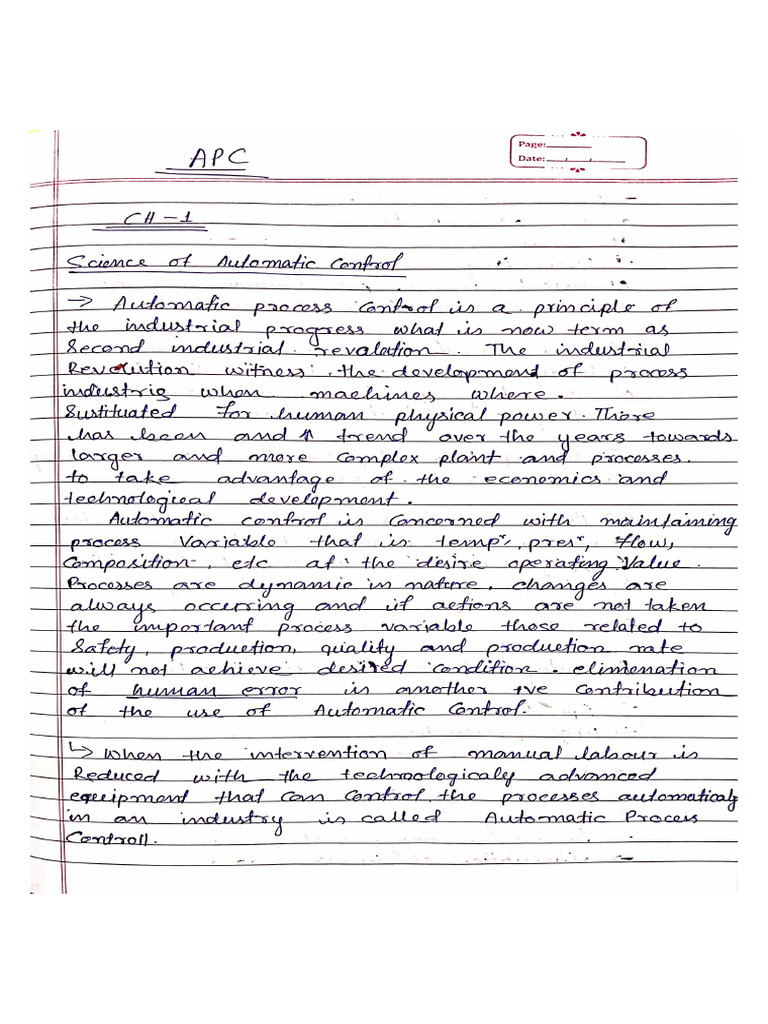 APC
Page:
Date:
CH-1
Science of Automatic Control
→ Automatic process control is a principle of
the industrial progress what is now term as
Second industrial revalution. The industrial
Revolution witness the development of process
industrie when machines where.
Sustituated for human physical power. There
has been and ↑ trend over the years towards
larger and more complex plant and processes.
to take advantage of the economics and
technological development.
Automatic control is concerned with maintaining
process variable that is tempʳ, presʳ, flow,
Composition, etc at the desire operating value.
Processes are dynamic in nature, changes are
always occurring and if actions are not taken
the important process variable those related to
Safety, production, quality and production rate
will not achieve desired condition. elimenation
of human error is another +ve contribution
of the use of Automatic Control.
↳ When the intervention of manual labour is
Reduced with the technologicaly advanced
equipment that can control the processes automaticaly
in an industry is called Automatic Process
Controll.